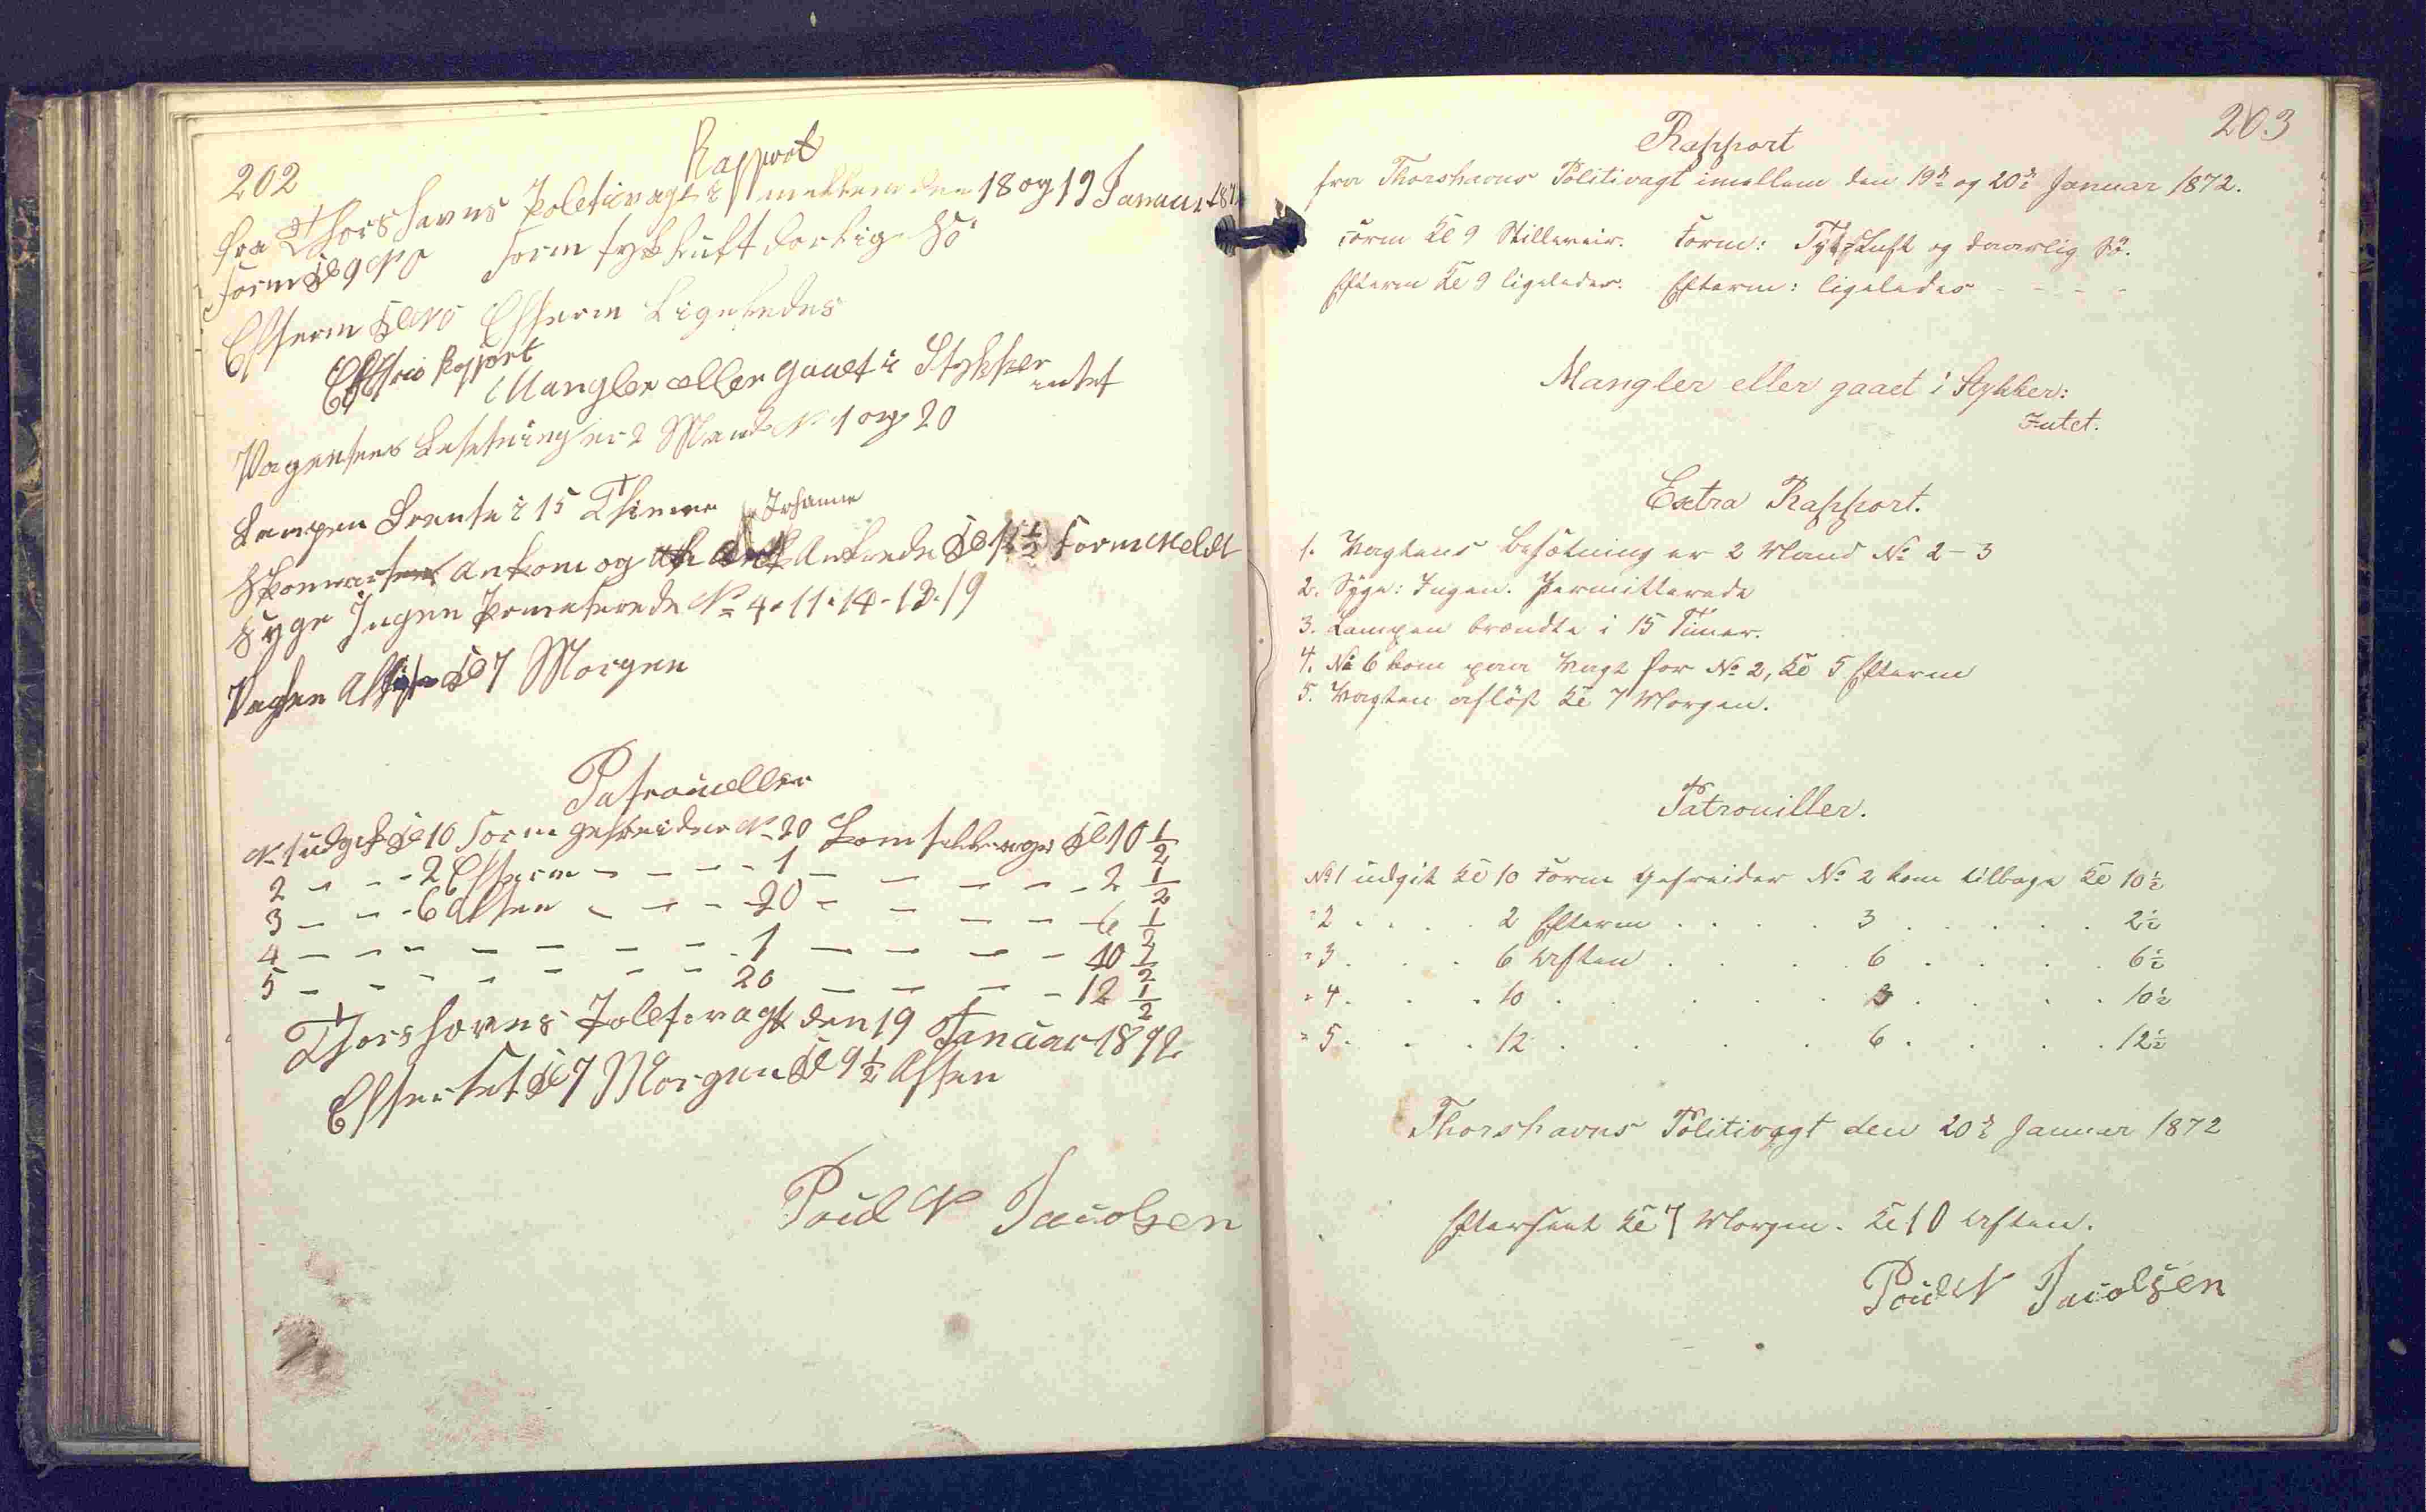 202
Rapport
fra Thorshavns Poletivagt i mellem den 18 og 19 Januar 187
Form Kl 9 NO Form tyk Luft Dorlig Sö
Efterm Kl NO Efterm Ligeledes
Ekstra Rapport
Mangler eller gaaet i Stykker
intet
Vagensens Besetning er 2 Mand No 1 og 20
Lampen Brente i 15 Thimer
Johanne
Skonnarten Ankom og Ankrede Kl 11 1/2 Form Meldt
Syge Ingen Permeterede No 4-11-14-13-19
Vagten Aflöst Kl 7 Morgen
Patroueller
No 1 udgik Kl 10 Form Gefreider No 20 kom telbage Kl 10 1/2
2 - - - 2 Efterm - - - - 1 - - - - - 2 1/2
3 - - - 6 Aften - - - - 20 - - - - - 6 1/2
4 - - - - - - - - 1 - - - - 10 1/2
5 - - - - - - - 20 - - - - 12 1/2
Thorshavns Poletivagt den 19 Januar 1872
Efterset Kl 7 Morgen Kl 9 1/2 Aften
Poul N Jacobsen
203
Rapport
fra Thorshavns Politivagt imellem den 19de og 20de Januar 1872.
Form Kl 9 Stilleveir. Form: Tyk Luft og daarlig Sö.
Efterm Kl 9 ligeledes. Efterm: ligeledes - - - -
Mangler eller gaaet i Stykker:
Intet.
Extra Rapport.
1. Vagtens Besætning er 2 Mand No 2 - 3
2. Syge: Ingen. Permitterede
3. Lampen brændte i 15 Timer.
4. No 6 kom paa Vagt for No 2, Kl 5 Efterm
5. Vagten aflöst Kl 7 Morgen.
Patrouiller.
No 1 udgik Kl 10 Form Gefreider No 2 kom tilbage Kl 10 1/2
" 2 . . . . 2 Efterm . . . . 3 . . . . . 2 1/2
" 3 . . . 6 Aften . . . . 6 . . . . . 6 1/2
" 4 . . . 10 . . . . . 3 . . . . 10 1/2
" 5 . . . 12 . . . . . 6 . . . . 12 1/2
Thorshavns Politivagt den 20de Januar 1872
Efterseet Kl 7 Morgen. Kl 10 Aften.
Poul N Jacobsen